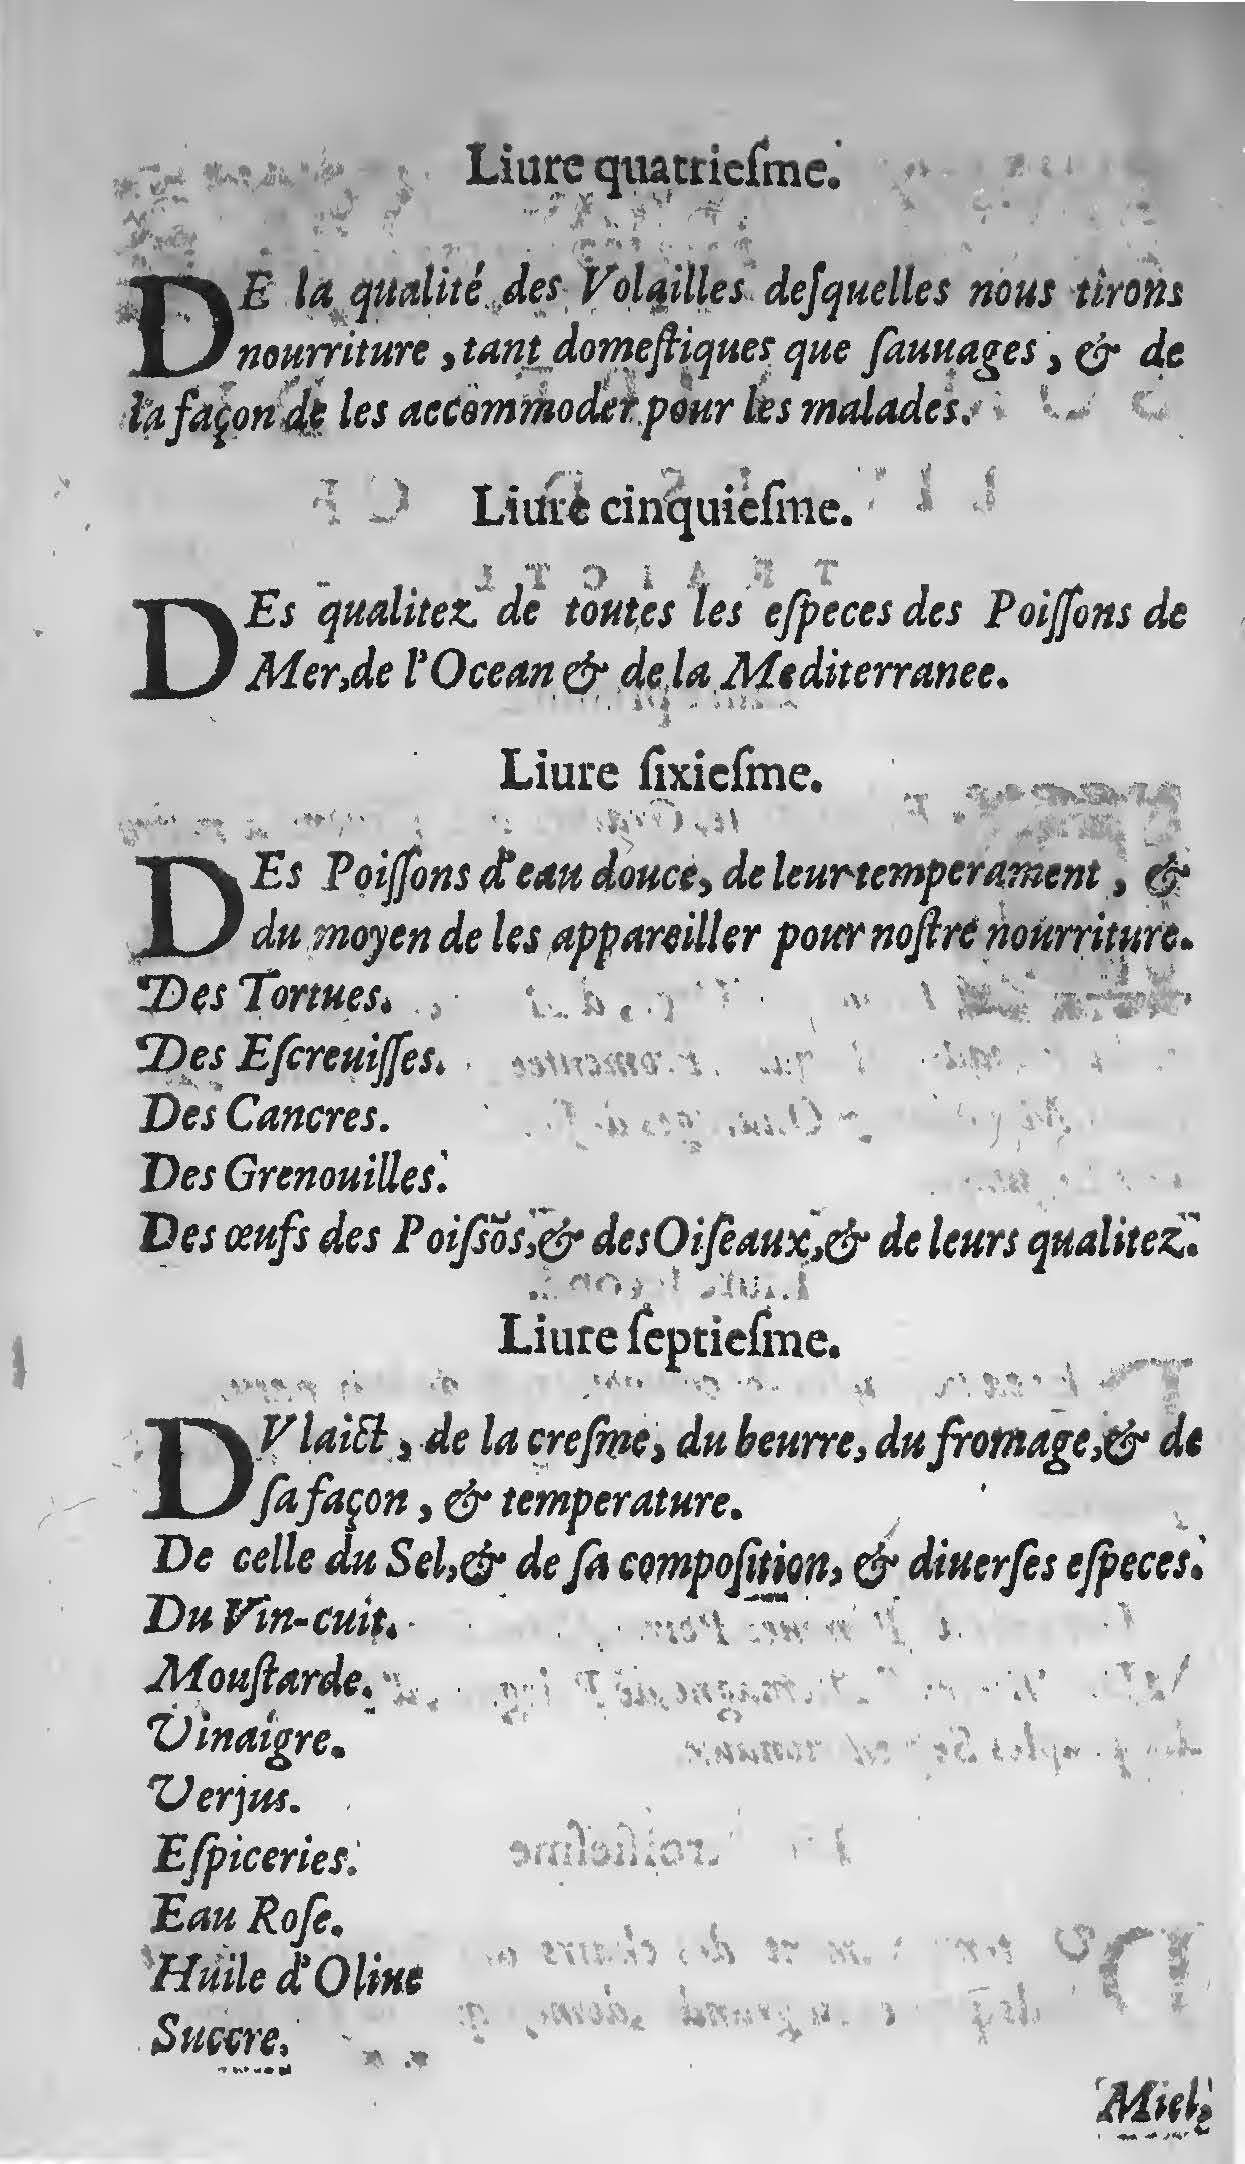 Liure quatrieſme.
DE la qualité des Volailles deſquelles nous tirons
nourriture, tant domeſtiques que ſauuages, & de
la façon de les accommoder pour les malades.
Liure cinquieſme.
DEs qualitez de toutes les eſpeces des Poiſſons de
Mer, de l'Ocean & de la Mediterranee.
Liure ſixieſme.
DEs Poiſſons d'eau douce, de leur temperament, &
du moyen de les appareiller pour noſtre nourriture.
Des Tortues.
Des Eſcreuiſſes.
Des Cancres.
Des Grenouilles.
Des œufs des Poiſsõs, & des Oiſeaux, & de leurs qualitez.
Liure ſeptieſme.
DV laict, de la creſme, du beurre, du fromage, & de
ſa façon, & temperature.
De celle du Sel, & de ſa compoſition, & diuerſes eſpeces.
Du Vin-cuit.
Mouſtarde.
Vinaigre.
Verjus.
Eſpiceries.
Eau Roſe.
Huile d'Oliue
Succre.
Miel,